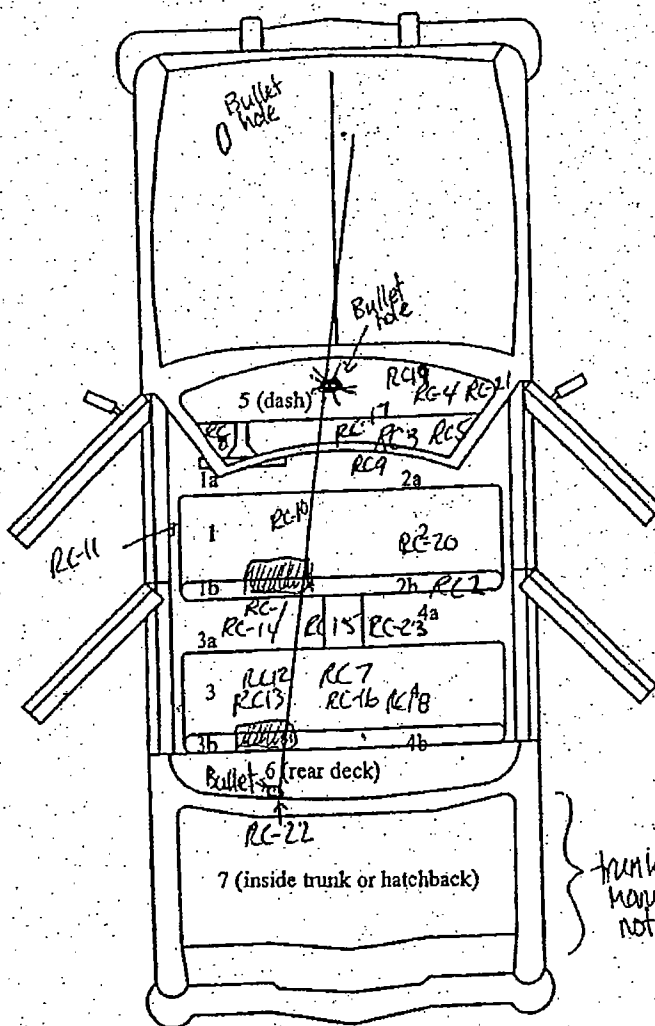 Bullet
hole
Bullet
hole
RC19
RC-4 RC-21
5 (dash)
RC-17
RC-3 RC5
RC
8
RC9
1a
2a
RC-10
RC-11
1
RC-20
1b
2b RC2
RC-1
3a
RC-14
RC 15
RC-23
4a
3
RC12
RC13
RC7
RC-16
3b
4b
Bullet
6 (rear deck)
RC-22
7 (inside trunk or hatchback)
not